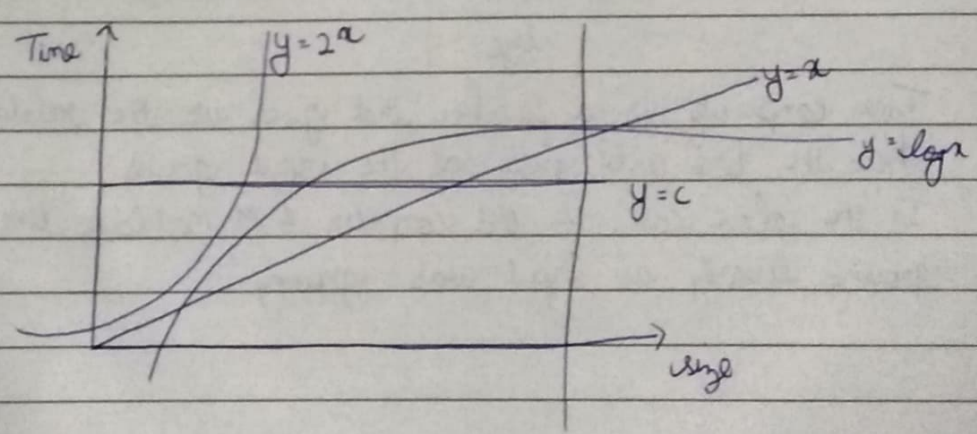 Time
y = 2^x
y = x
y = log x
y = c
size